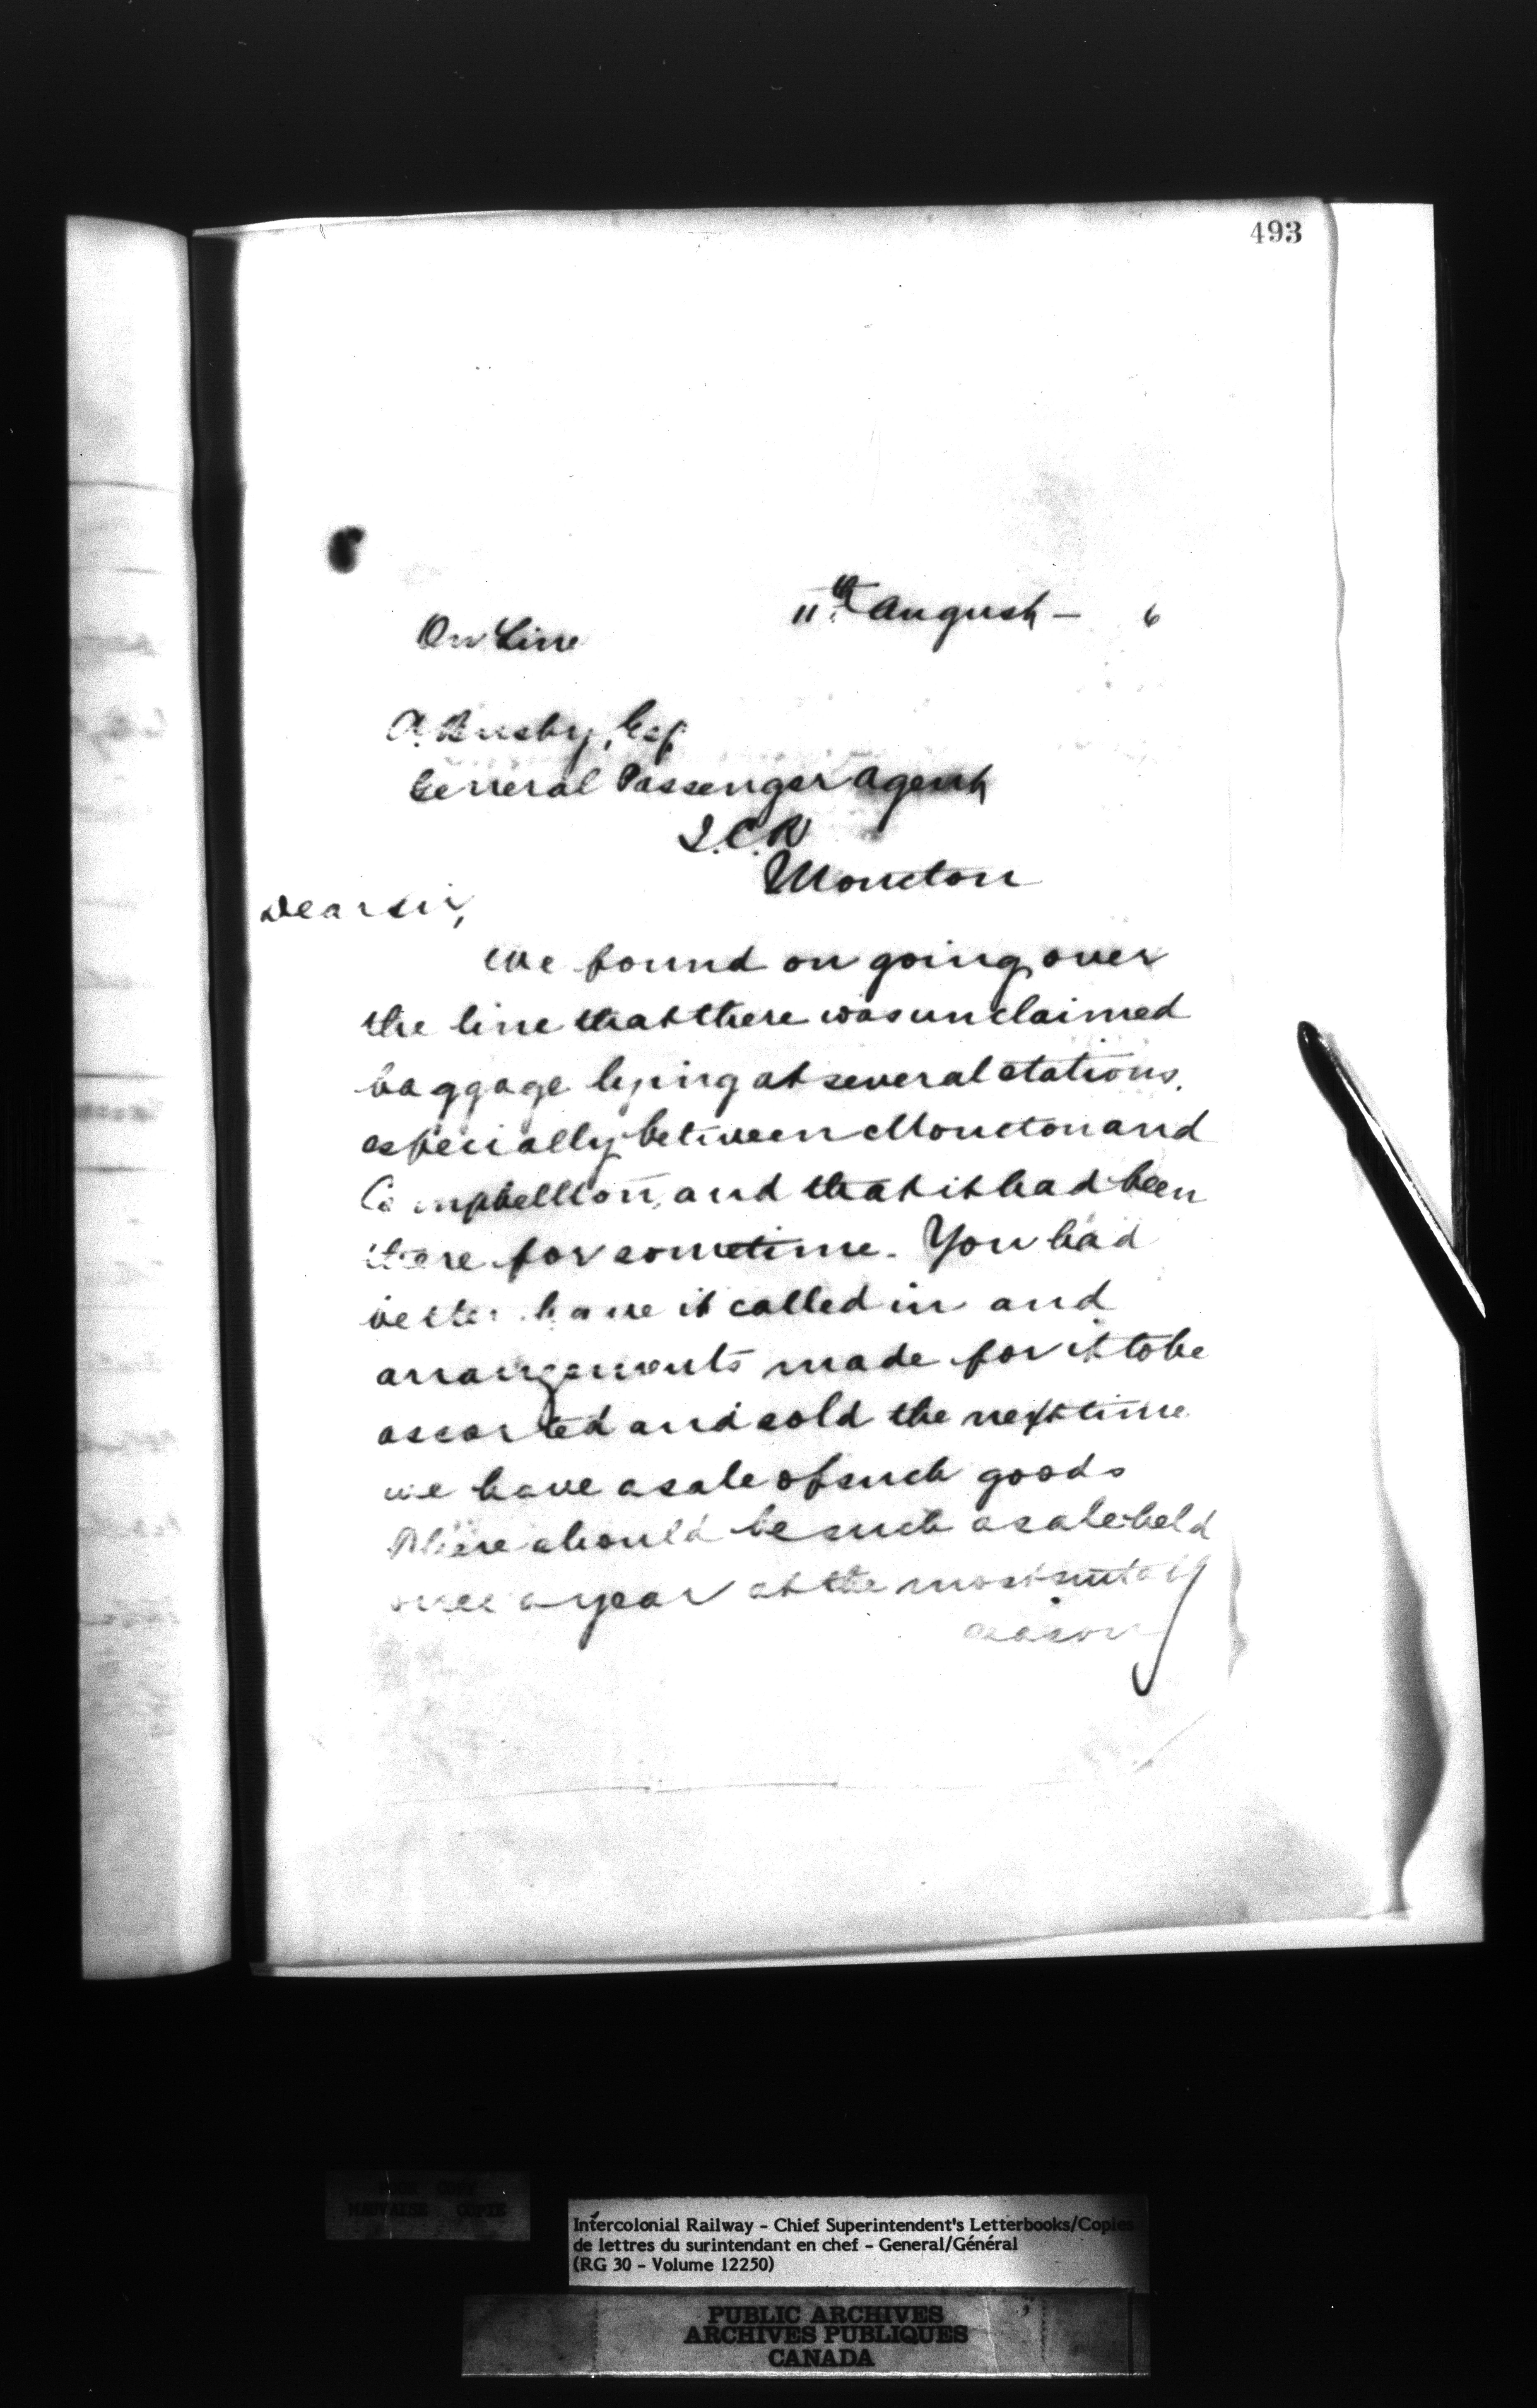 493
11th August - 6
On Line
A. Busby, Esq
General Passenger Agent
I.C.R
Moncton
Dear Sir,
We found on going over
the line that there was unclaimed
baggage lying at several stations,
especially between Moncton and
Campbellton, and that it had been
there for sometime. You had
better have it called in and
arrangements made for it to be
assorted and sold the next time
we have a sale of such goods
There should be such a sale held
once a year at the most suitable
season
POOR COPY
MAUVAISE COPIE
Intercolonial Railway - Chief Superintendent's Letterbooks/Copies
de lettres du surintendant en chef - General/Général
(RG 30 - Volume 12250)
PUBLIC ARCHIVES
ARCHIVES PUBLIQUES
CANADA